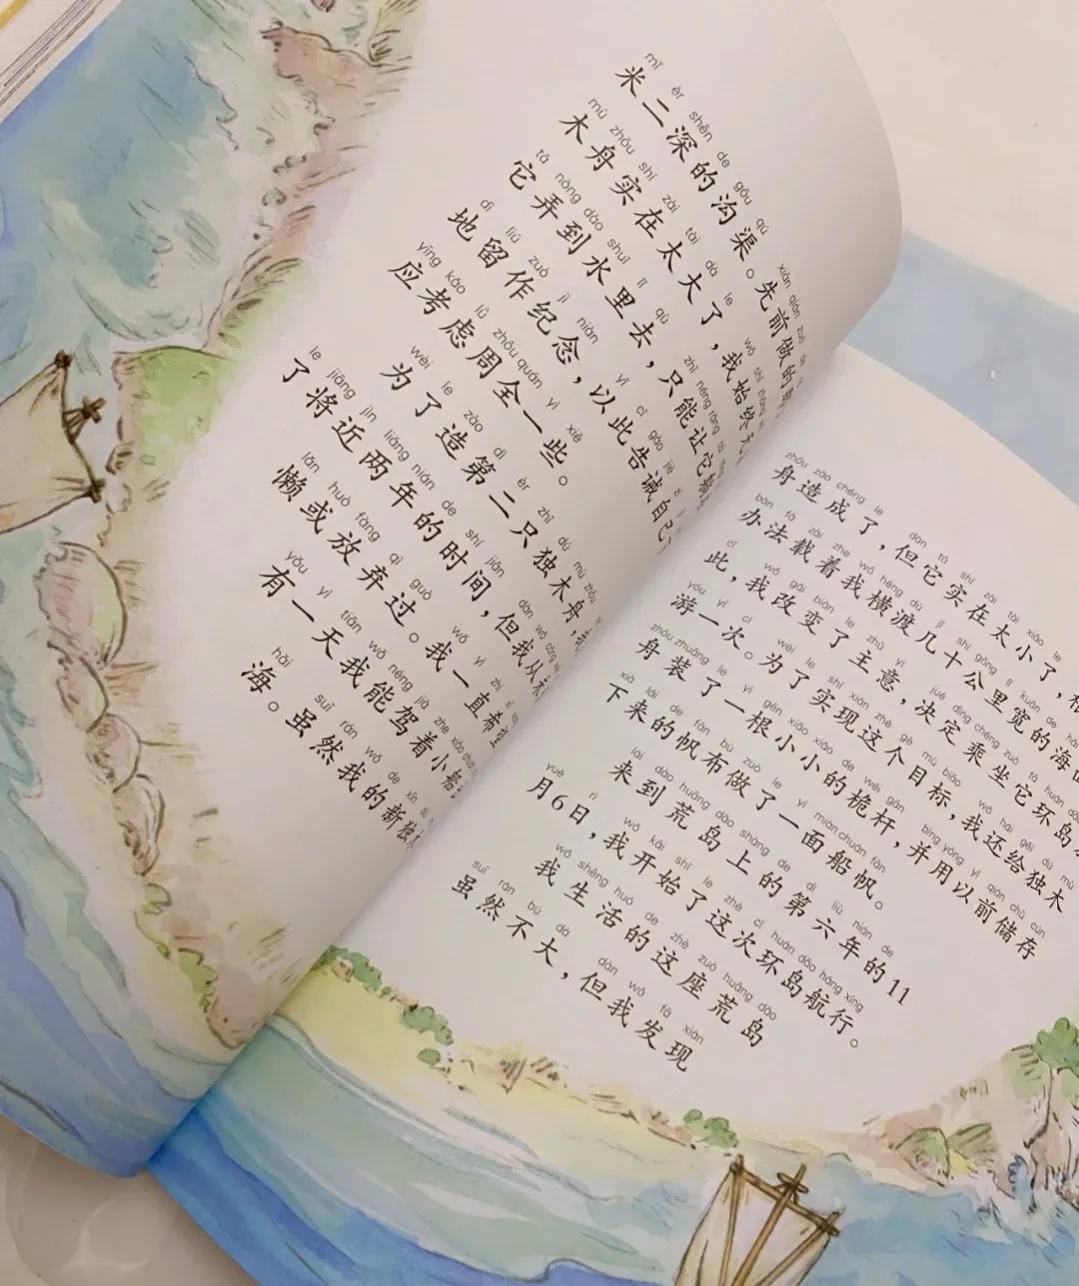 米二深的沟渠。先前做的那
木舟实在太大了，我始终无
它弄到水里去，只能让它
地留作纪念，以此告诫自己
应考虑周全一些。
为了造第二只独木舟，
了将近两年的时间，但我从未
懒或放弃过。我一直希望
有一天我能驾着小船
海。虽然我的新独木
舟造成了，但它实在太小了，
办法载着我横渡几十公里宽的海
此，我改变了主意，决定乘坐它环岛
游一次。为了实现这个目标，我还给独木
舟装了一根小小的桅杆，并用以前储存
下来的帆布做了一面船帆。
来到荒岛上的第六年的11
月6日，我开始了这次环岛航行。
我生活的这座荒岛
虽然不大，但我发现